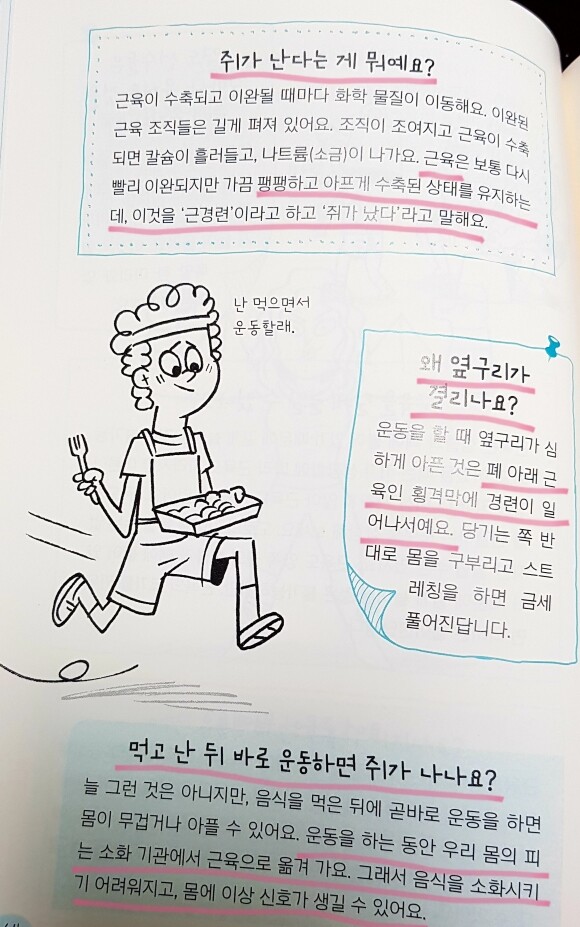 쥐가 난다는 게 뭐예요?
근육이 수축되고 이완될 때마다 화학 물질이 이동해요. 이완된
근육 조직들은 길게 펴져 있어요. 조직이 조여지고 근육이 수축
되면 칼슘이 흘러들고, 나트륨(소금)이 나가요. 근육은 보통 다시
빨리 이완되지만 가끔 팽팽하고 아프게 수축된 상태를 유지하는
데, 이것을 ‘근경련’이라고 하고 ‘쥐가 났다’라고 말해요.
난 먹으면서
운동할래.
왜 옆구리가
결리나요?
운동을 할 때 옆구리가 심
하게 아픈 것은 폐 아래 근
육인 횡격막에 경련이 일
어나서예요. 당기는 쪽 반
대로 몸을 구부리고 스트
레칭을 하면 금세
풀어진답니다.
먹고 난 뒤 바로 운동하면 쥐가 나나요?
늘 그런 것은 아니지만, 음식을 먹은 뒤에 곧바로 운동을 하면
몸이 무겁거나 아플 수 있어요. 운동을 하는 동안 우리 몸의 피
는 소화 기관에서 근육으로 옮겨 가요. 그래서 음식을 소화시키
기 어려워지고, 몸에 이상 신호가 생길 수 있어요.